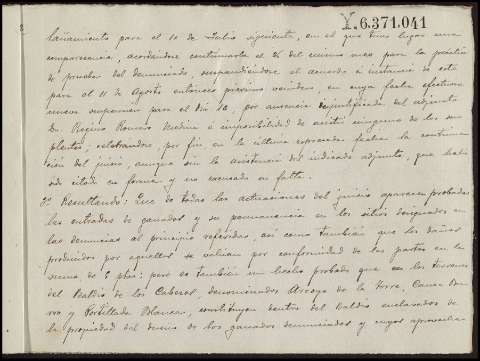 Y.6.371.041
lanamiento para el 10 de Julio siguiente, en el que tuvo lugar una
comparecencia, acordándose continuarla el 26 del mismo mes para la práctica
de pruebas del denunciado, suspendiéndose el acuerdo á instancia de este
para el 11 de Agosto entonces próximo venidero, en cuya fecha efectuose
nueva suspension para el dia 12, por ausencia injustificada del adjunto
D. Regino Romero Medina é imposibilidad de asistir ninguno de los su-
plentes; celebrandose, por fin en la última expresada fecha la continua-
ción del juicio, aunque sin la asistencia del indicado adjunto, que habia
sido citado en forma y no excusado su falta.
2º Resultando: Que de todas las actuaciones del juicio aparecen probadas
las entradas de ganados y su permanencia en los sitios designados en
las denuncias al principio referidas, así como también que los daños
producidos por aquellos se valúan por conformidad de las partes en la
suma de 6 ptas; pero es también un hecho probado que en los terrenos
del Baldío de los Caberos, denominados Arroyo de la Torre, Casar
y Portillada Blanca, constituyen dentro del Baldío enclavados de
la propiedad del dueño de los ganados denunciados y cuyos aprovecha-